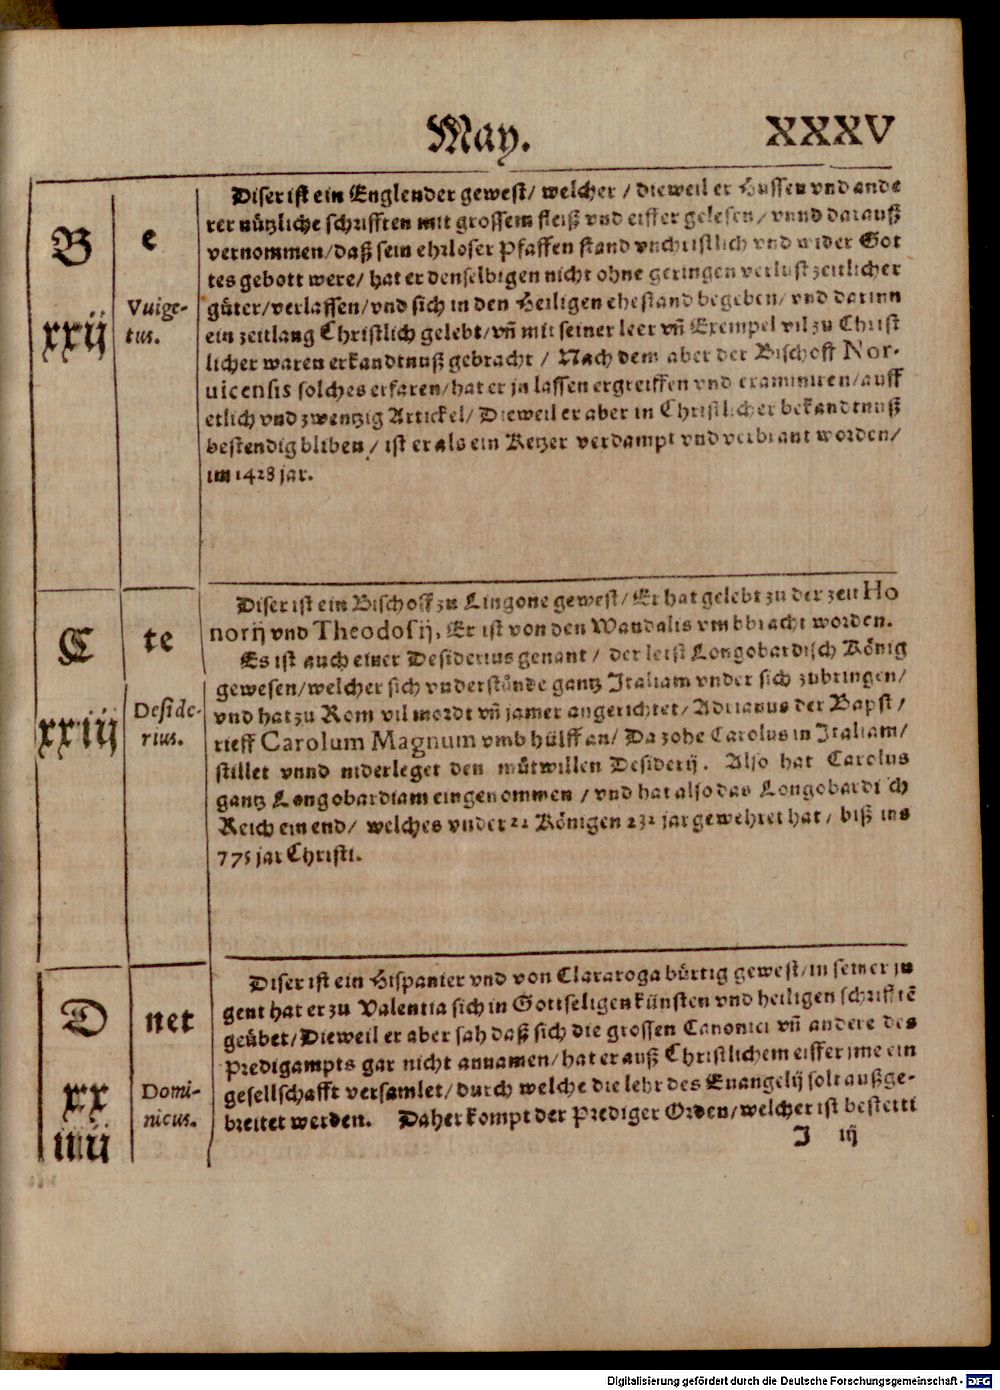 May. XXXV
B e
xxij
Vuige-
tus.
Diser ist ein Englender gewest/ welcher / dieweil er Hussen vnd ande
rer nützliche schrifften mit grossem fleiß vnd eiffer gelesen/ vnnd darauß
vernommen/daß sein ehrloser Pfaffen stand vnchristlich vnd wider Got
tes gebott were/ hat er denselbigen nicht ohne geringen verlust zeitlicher
güter/verlassen/vnd sich in den Heiligen ehestand begeben/ vnd darinn
ein zeitlang Christlich gelebt/vñ mit seiner leer vñ Exempel vil zu Christ
licher waren erkandtnuß gebracht / Nach dem aber der Bischoff Nor-
uicensis solches erfaren/hat er jn lassen ergreiffen vnd examiniren/auff
etlich vnd zwentzig Artickel/ Dieweil er aber in Christlicher bekandtnuß
bestendig bliben/ ist er als ein Ketzer verdampt vnd verbrant worden/
im 1428 jar.
C te
xxiij
Deside-
rius.
Diser ist ein Bischoff zu Lingone gewest/ Er hat gelebt zu der zeit Ho
norij vnd Theodosij, Er ist von den Wandalis vmbbracht worden.
Es ist auch einer Desiderius genant / der letst Longobardisch König
gewesen/welcher sich vnderstünde gantz Italiam vnder sich zubringen/
vnd hat zu Rom vil mordt vñ jamer angerichtet/ Adrianus der Bapst /
rieff Carolum Magnum vmb hülff an/ Da zohe Carolus in Italiam/
stillet vnnd niderleget den mütwillen Desiderij. Also hat Carolus
gantz Longobardiam eingenommen / vnd hat also das Longobardi ch
Reich ein end/ welches vnder 21 Königen 232 jar gewehret hat / biß ins
775 jar Christi.
D net
xx
iiij
Domi-
nicus.
Diser ist ein Hispanier vnd von Clararoga bürtig gewest/in seiner ju
gent hat er zu Valentia sich in Gottseligen künsten vnd heiligen schrifftē
geübet/ Dieweil er aber sah daß sich die grossen Canonici vñ andere des
Predigampts gar nicht annamen/ hat er auß Christlichem eiffer jme ein
gesellschafft versamlet/ durch welche die lehr des Euangelij solt außge-
breitet werden. Daher kompt der Prediger Orden/welcher ist bestetti
I iij
Digitalisierung gefördert durch die Deutsche Forschungsgemeinschaft - DFG